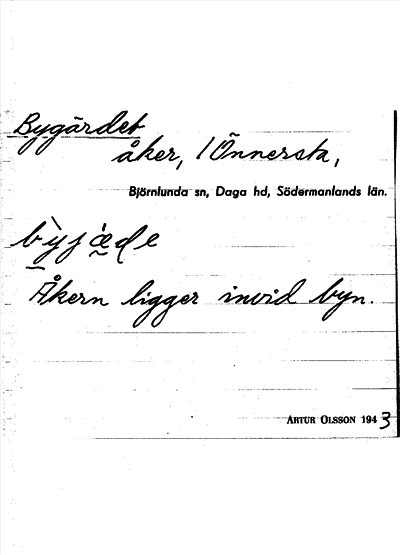 Bygärdet
åker, 1 Önnersta,
Björnlunda sn, Daga hd, Södermanlands län.
Åkern ligger invid byn.
ARTUR OLSSON 1943